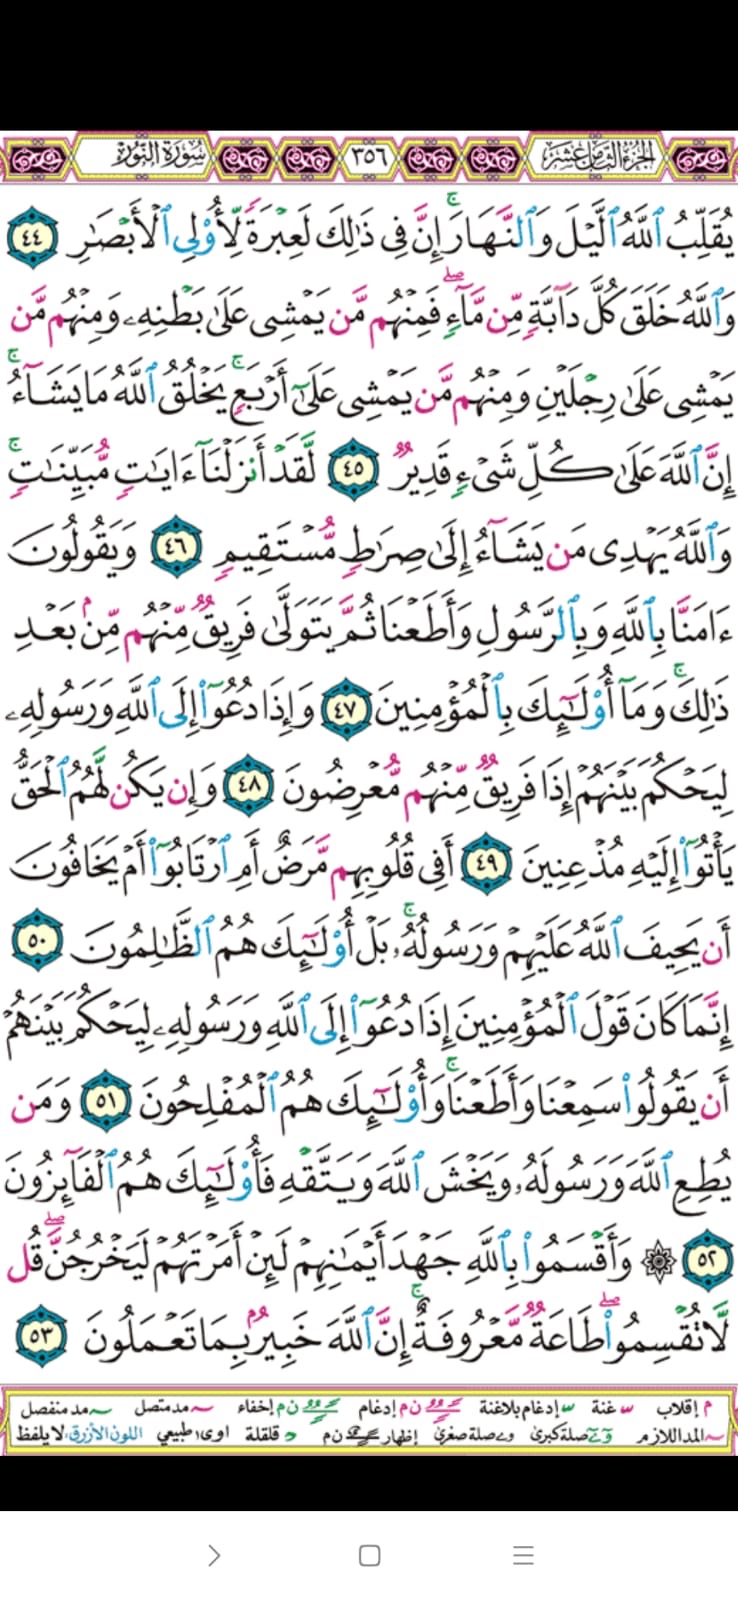 الجزء الثامن عشر ٣٥٦ سورة النور
يُقَلِّبُ ٱللَّهُ ٱلَّيۡلَ وَٱلنَّهَارَۚ إِنَّ فِي ذَٰلِكَ لَعِبۡرَةٗ لِّأُوْلِي ٱلۡأَبۡصَٰرِ ٤٤
وَٱللَّهُ خَلَقَ كُلَّ دَآبَّةٖ مِّن مَّآءٖۖ فَمِنۡهُم مَّن يَمۡشِي عَلَىٰ بَطۡنِهِۦ وَمِنۡهُم مَّن
يَمۡشِي عَلَىٰ رِجۡلَيۡنِ وَمِنۡهُم مَّن يَمۡشِي عَلَىٰٓ أَرۡبَعٖۚ يَخۡلُقُ ٱللَّهُ مَا يَشَآءُۚ
إِنَّ ٱللَّهَ عَلَىٰ كُلِّ شَيۡءٖ قَدِيرٞ ٤٥ لَّقَدۡ أَنزَلۡنَآ ءَايَٰتٖ مُّبَيِّنَٰتٖۚ
وَٱللَّهُ يَهۡدِي مَن يَشَآءُ إِلَىٰ صِرَٰطٖ مُّسۡتَقِيمٖ ٤٦ وَيَقُولُونَ
ءَامَنَّا بِٱللَّهِ وَبِٱلرَّسُولِ وَأَطَعۡنَا ثُمَّ يَتَوَلَّىٰ فَرِيقٞ مِّنۡهُم مِّنۢ بَعۡدِ
ذَٰلِكَۚ وَمَآ أُوْلَٰٓئِكَ بِٱلۡمُؤۡمِنِينَ ٤٧ وَإِذَا دُعُوٓاْ إِلَى ٱللَّهِ وَرَسُولِهِۦ
لِيَحۡكُمَ بَيۡنَهُمۡ إِذَا فَرِيقٞ مِّنۡهُم مُّعۡرِضُونَ ٤٨ وَإِن يَكُن لَّهُمُ ٱلۡحَقُّ
يَأۡتُوٓاْ إِلَيۡهِ مُذۡعِنِينَ ٤٩ أَفِي قُلُوبِهِم مَّرَضٌ أَمِ ٱرۡتَابُوٓاْ أَمۡ يَخَافُونَ
أَن يَحِيفَ ٱللَّهُ عَلَيۡهِمۡ وَرَسُولُهُۥۚ بَلۡ أُوْلَٰٓئِكَ هُمُ ٱلظَّٰلِمُونَ ٥٠
إِنَّمَا كَانَ قَوۡلَ ٱلۡمُؤۡمِنِينَ إِذَا دُعُوٓاْ إِلَى ٱللَّهِ وَرَسُولِهِۦ لِيَحۡكُمَ بَيۡنَهُمۡ
أَن يَقُولُواْ سَمِعۡنَا وَأَطَعۡنَاۚ وَأُوْلَٰٓئِكَ هُمُ ٱلۡمُفۡلِحُونَ ٥١ وَمَن
يُطِعِ ٱللَّهَ وَرَسُولَهُۥ وَيَخۡشَ ٱللَّهَ وَيَتَّقۡهِ فَأُوْلَٰٓئِكَ هُمُ ٱلۡفَآئِزُونَ
٥٢ ۞ وَأَقۡسَمُواْ بِٱللَّهِ جَهۡدَ أَيۡمَٰنِهِمۡ لَئِنۡ أَمَرۡتَهُمۡ لَيَخۡرُجُنَّۖ قُل
لَّا تُقۡسِمُواْۖ طَاعَةٞ مَّعۡرُوفَةٌۚ إِنَّ ٱللَّهَ خَبِيرُۢ بِمَا تَعۡمَلُونَ ٥٣
م إقلاب غنة إدغام بلاغنة ن م إدغام ن م إخفاء مد متصل مد منفصل
المد اللازم صلة كبرى صلة صغرى إظهار ن م قلقلة اوى طبيعي اللون الأزرق: لا يلفظ